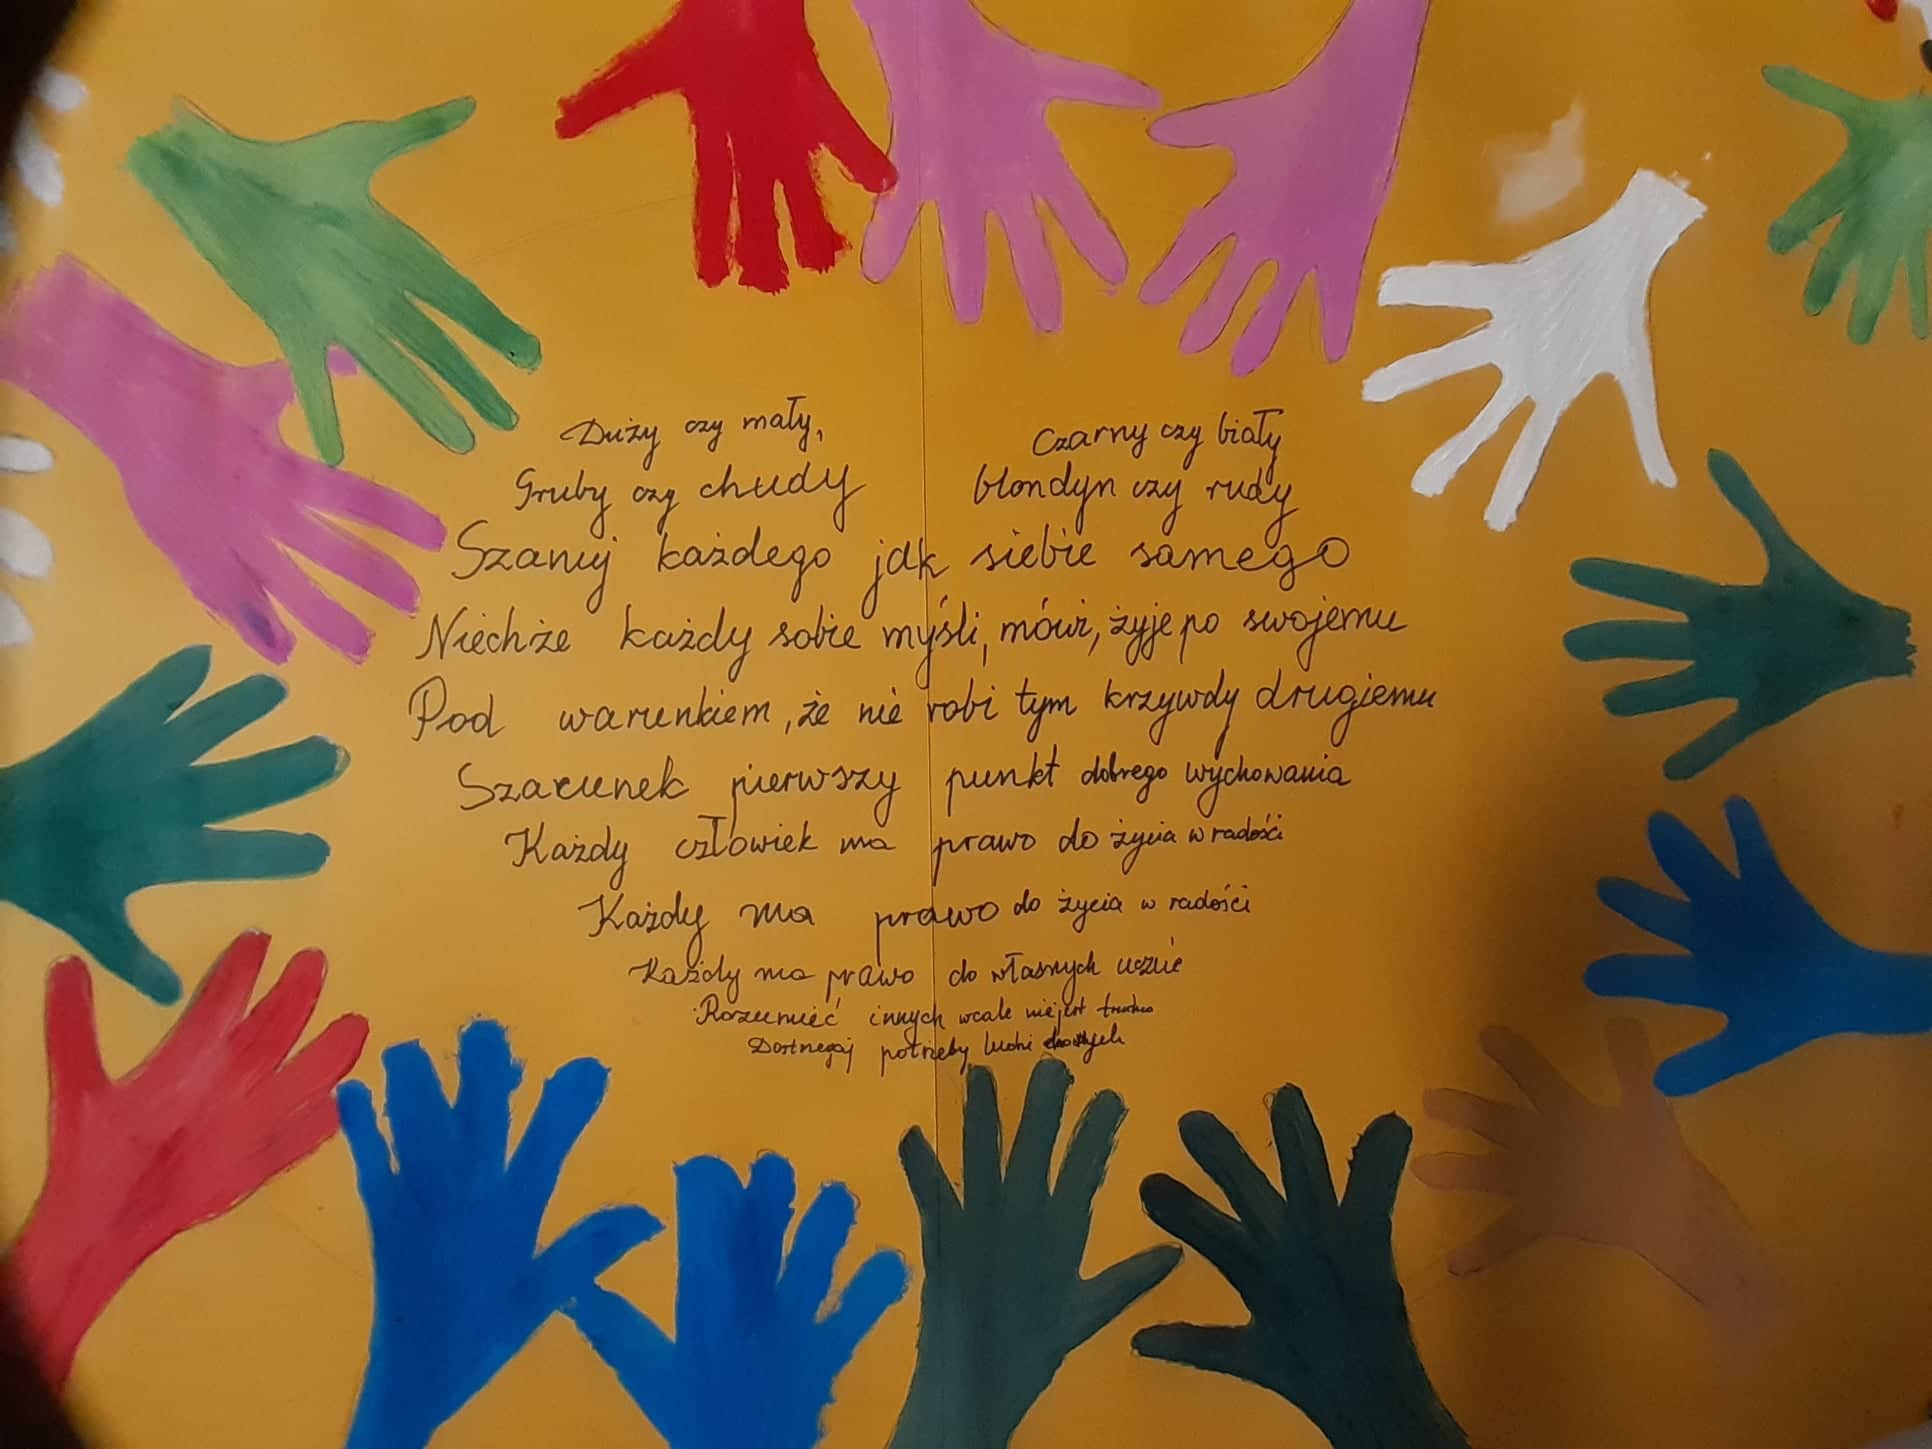 Duży czy mały, Czarny czy biały
Gruby czy chudy blondyn czy rudy
Szanuj każdego jak siebie samego
Niechże każdy sobie myśli, mówi, żyje po swojemu
Pod warunkiem, że nie robi tym krzywdy drugiemu
Szacunek pierwszy punkt dobrego wychowania
Każdy człowiek ma prawo do życia w radości
Każdy ma prawo do życia w radości
Każdy ma prawo do własnych uczuć
Rozumieć innych wcale nie jest trudno
Dostrzegaj potrzeby ludzi